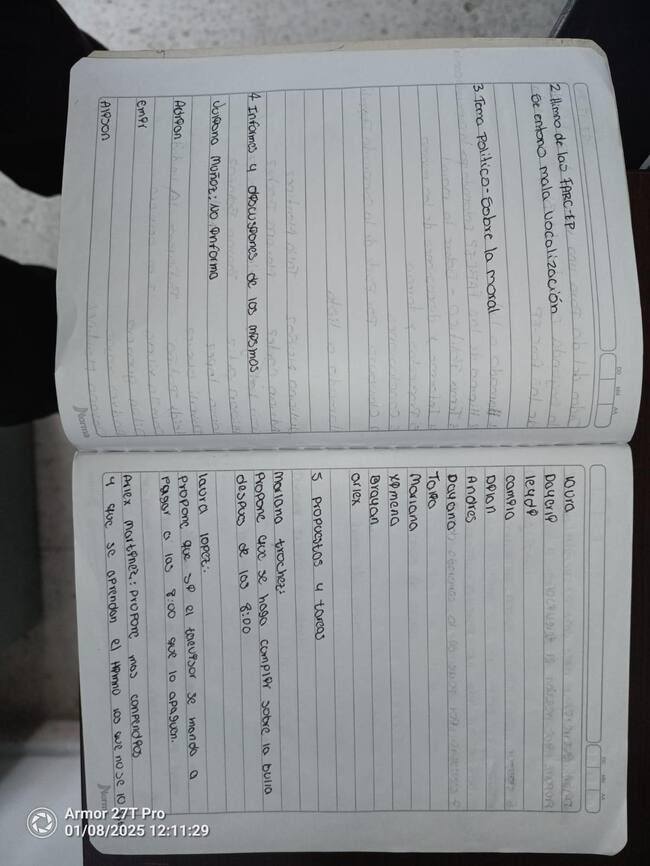 2. Himno de las FARC-EP
Se entono mala vocalización
3. Tema Politico - Sobre la moral
4 Informes y discusiones de los mismos
Muñoz: No informa
Adrian
emir
Alison
Norma
laura
leydi
camila
Dilan
Andres
Dayana
Mariana
Ximena
Brayan
ariex
5 propuestas y tareas
Mariana trochez:
Propone que se haga complir sobre la bulla
despues de las 8:00
laura lopez:
Propone que si el se manda a
Pagar a las 8:00 que lo apaguen.
Ariex Martinez: Propone mas
y que se aprendan el Himno los que no se lo
Armor 27T Pro
01/08/2025 12:11:29